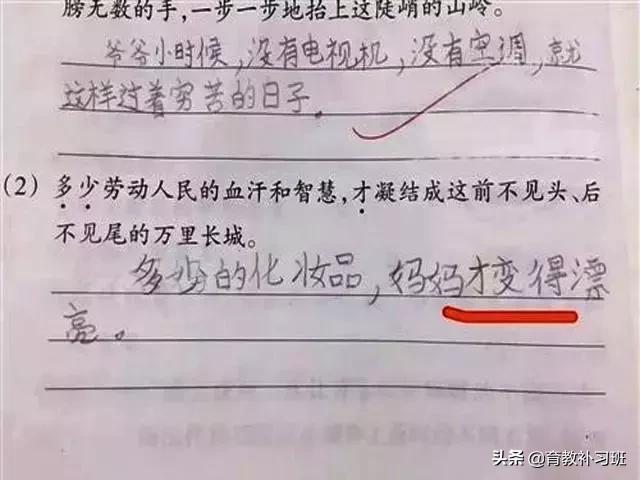 膀无数的手,一步一步地抬上这陡峭的山岭。
爷爷小时候,没有电视机,没有空调,就
这样过着穷苦的日子。
(2) 多少劳动人民的血汗和智慧,才凝结成这前不见头、后
不见尾的万里长城。
多少的化妆品,妈妈才变得漂
亮。
头条 @育教补习班